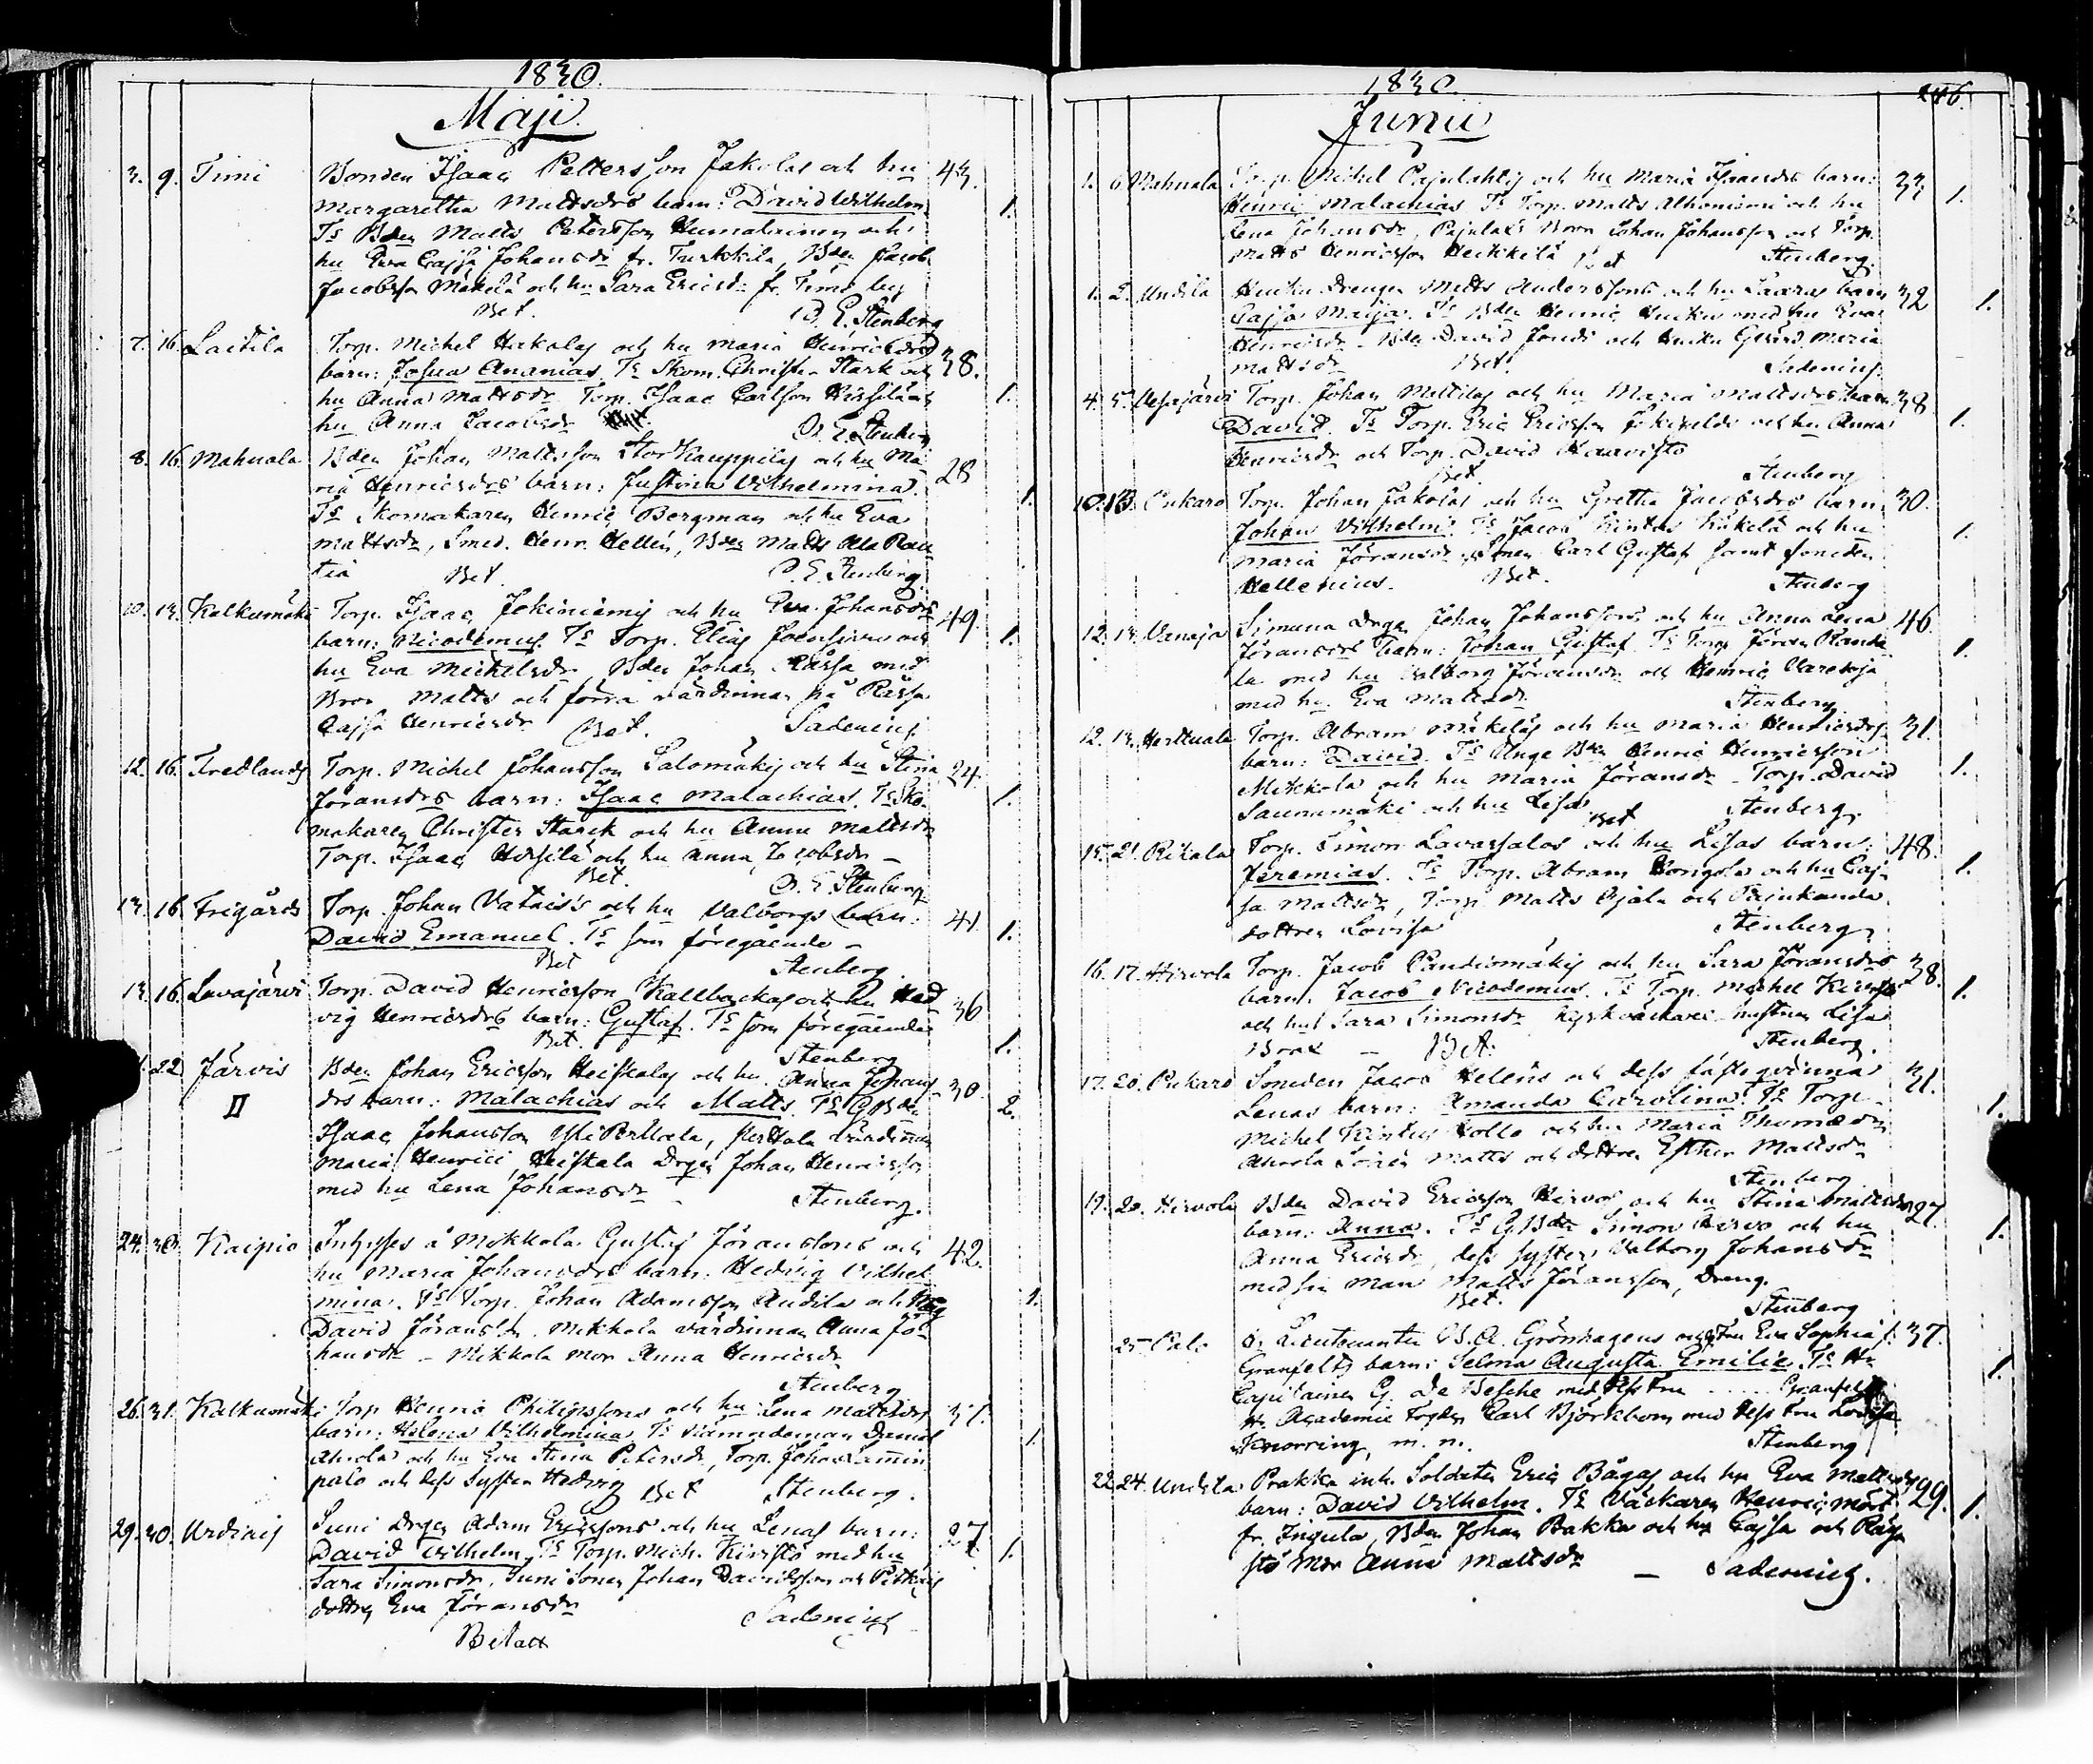 1830.
Maji
3. 9. Timi Bonden Isaac Pettersson Jakolas och hu 43.
Margaretha Mattsdrs barn: David Wilhelm. 1.
Ts Bden Matts Petersson Humaloinen och
hu Eva Cajsa Johansdr fr. Turkkila, Bden Jacob
Jacobsson Mäkelä och hu Sara Ericsdr fr. Timi by
Bet. C. E. Stenberg
7. 16. Laitila Torp. Michel Hakolas och hu Maria Henricsdrs 38.
barn: Josua Ananias. Ts Skom. Christer Stark och
hu Anna Mattsdr Torp. Isaac Carlson Hirsilä och 1.
hu Anna Jacobsdr C. E. Stenberg
8. 16. Mahnala Bden Johan Mattsson Stor Kauppilas och hu Ma 28
ria Henricsdrs barn: Justina Vilhelmina. 1.
Ts Skomakaren Henric Bergman och hu Eva
Mattsdr, Smed. Henr. Hellén, Bden Matts Ala Rau
tia Bet. C. E. Stenberg.
10. 13. Kalkumäki Torp. Isaac Jokiniemis och hu Eva Johansdrs 49.
barn: Nicodemus. Ts Torp. Elias och 1.
hu Eva Michelsdr, Bden Johan Rässa med
Bror Matts och förra värdinnan på Rässa
Cajsa Henricsdr Bet. Sadenius.
12. 16. Fredlands Torp. Michel Johansson Salomäkis och hu Stina 24.
Jöransdrs barn: Isaac Malachias. Ts Sko- 1.
makaren Christer Starck och hu Anna Mattsdr
Torp. Isaac Hirsilä och hu Anna Jacobsdr –
Bet. C. E. Stenberg
13. 16. Frigårds Torp. Johan Vatais's och hu Valborgs barn: 41. 1.
David Emanuel. Ts som föregående –
Bet Stenberg.
13. 16. Lavajärvi Torp. David Henricsson Kallbackas och hu Hed 36
vig Henricsdrs barn: Gustaf. Ts som föregående
Bet. Stenberg 1.
22. Järvis Bden Johan Ericsson Heiskalas och hu Anna Johans 30.
II drs barn: Malachias och Matts. Ts GBden 2.
Isaac Johansson Perttala, Perttala värdinnan
Maria Henrici, Heiskala Drgen Johan Henricsson
med hu Lena Johansdr – Stenberg.
24. 30. Kaipio Inhyses å Mikkola Gustaf Jöranssons och 42.
hu Maria Johansdrs barn: Hedvig Vilhel
mina. Ts Torp. Johan Adamsson Andila och 1.
David Jöransson. Mikkola värdinnan Anna Jo-
hansdr – Mikkola mor Anna Henricsdr
Stenberg
26. 31. Kalkumäki Torp Henric Philipssons och hu Lena Mattsdrs 31.
barn: Helena Vilhelmina. Ts Nämndeman Daniel 1.
Ahrola och hu Eva Stina Petersdr, Torp. Johan Lamin
palo och dess syster Hedvig Bet Stenberg.
29. 30. Urdiais Suni Drgen Adam Ericssons och hu Lenas barn: 27.
David Vilhelm, Ts Torp. Mich. Kivistö med hu 1.
Sara Simonsdr. Suni Sonen Johan Davidsson och
dotter Eva Jöransdr Sadenius
Betalt
1830.
Junii
1. 6. Mahnala Torp. Michel Pajulahtis och hu Maria Isaacsdrs barn: 33
Henric Malachias Ts Torp. Matts Alhoniemi och hu 1.
Lena Johansdr, Bror Johan Johansson och Torp.
Matts Henricsson Heikkilä Bet Stenberg.
1. 2. Undila Huiku Drengen Matts Anderssons och hu Saaras barn 32
Cajsa Maija. Ts Bden Henric Huiku med hu Eva 1.
Henricsdr – Bden David och Huiku Maria
Mattsdr Bet. Sadenius.
4. 5. Vesajärvi Torp. Johan Mattilas och hu Maria Mattsdrs barn 38
David. Ts Torp. Eric Ericsson och hu Anna 1.
Henricsdr och Torp. David Haavisto
Bet. Stenberg
10. 13. Torp. Johan Jakolas och hu Gretha Jacobsdrs barn 30.
Johan Vilhelm. Ts Jacob och hu 1.
Maria Jöransdr. Sonen Carl Gustaf samt
Hellenius. Bet. Stenberg
12. 13. Vanaja Simuna Drgen Johan Johanssons och hu Anna Lena 46.
Jöransdrs barn: Johan Gustaf. Ts Torp. Jöran 1.
la med hu Valborg Jöransdr och Henric
med hu Eva Mattsdr Stenberg
12. 13. Herttuala Torp. Abram Mäkeläs och hu Maria Henricsdrs 31.
barn: David. Ts Unge Bden Henric Henricsson 1.
Mikkola och hu Maria Jöransdr – Torp. David
Saunamäki och hu Lisa Bet Stenberg.
15. 21. Rikala Torp. Simon Lavassalos och hu Lisas barn: 48.
Jeremias. Ts Torp. Abram Kongola och hu Caj- 1.
sa Mattsdr, Torp. Matts Ojala och
dottren Lovisa Stenberg
16. 17. Hirvola Torp. Jacob Pandiomäkis och hu Sara Jöransdrs 38.
barn. Jacob Nicodemus. Ts Torp. Michel 1.
och hu Sara Simonsdr hustru Lisa
Brax – Bet. Stenberg.
17. 20. Soneden Jacob Heleni och dess fästeqvinna 31.
Lenas barn: Amanda Carolina. Ts Torp. 1.
Michel Kintus Hollo och hu Maria Thomædr
Ahrola Sonen Matts och dottren Esther Mattsdr
Stenberg
19. 20. Hirvola Bden David Ericsson Hirvos och hu Stina Mattsdrs 27.
barn: Anna. Ts GBden Simon Hirvo och hu 1.
Anna Ericsdr, dess syster Valborg Johansdr
med sin man Matts Jöransson, Dreng.
Bet. Stenberg
25 Palo Hr Lieutenanten B. A. Grönhagens och Fru Eva Sophia f. 37.
Granfelts barn: Selma Augusta Emilie. Ts Hr 1.
Capitainen G. De Besche med dess Fru ..... Granfelt
Hr Academie Fogden Carl Björkbom med dess Fru Lovisa
Knorring, m. m. Stenberg
22 24. Undila Prakka inh. Soldaten Eric Bågas och hu Eva Mattsdrs 29.
barn: David Vilhelm. Ts Väckaren Henric Mört 1.
fr. Ingula, Bden Johan Bakka och hu Cajsa och Räy
stö Mor Anna Mattsdr – Sadenius.